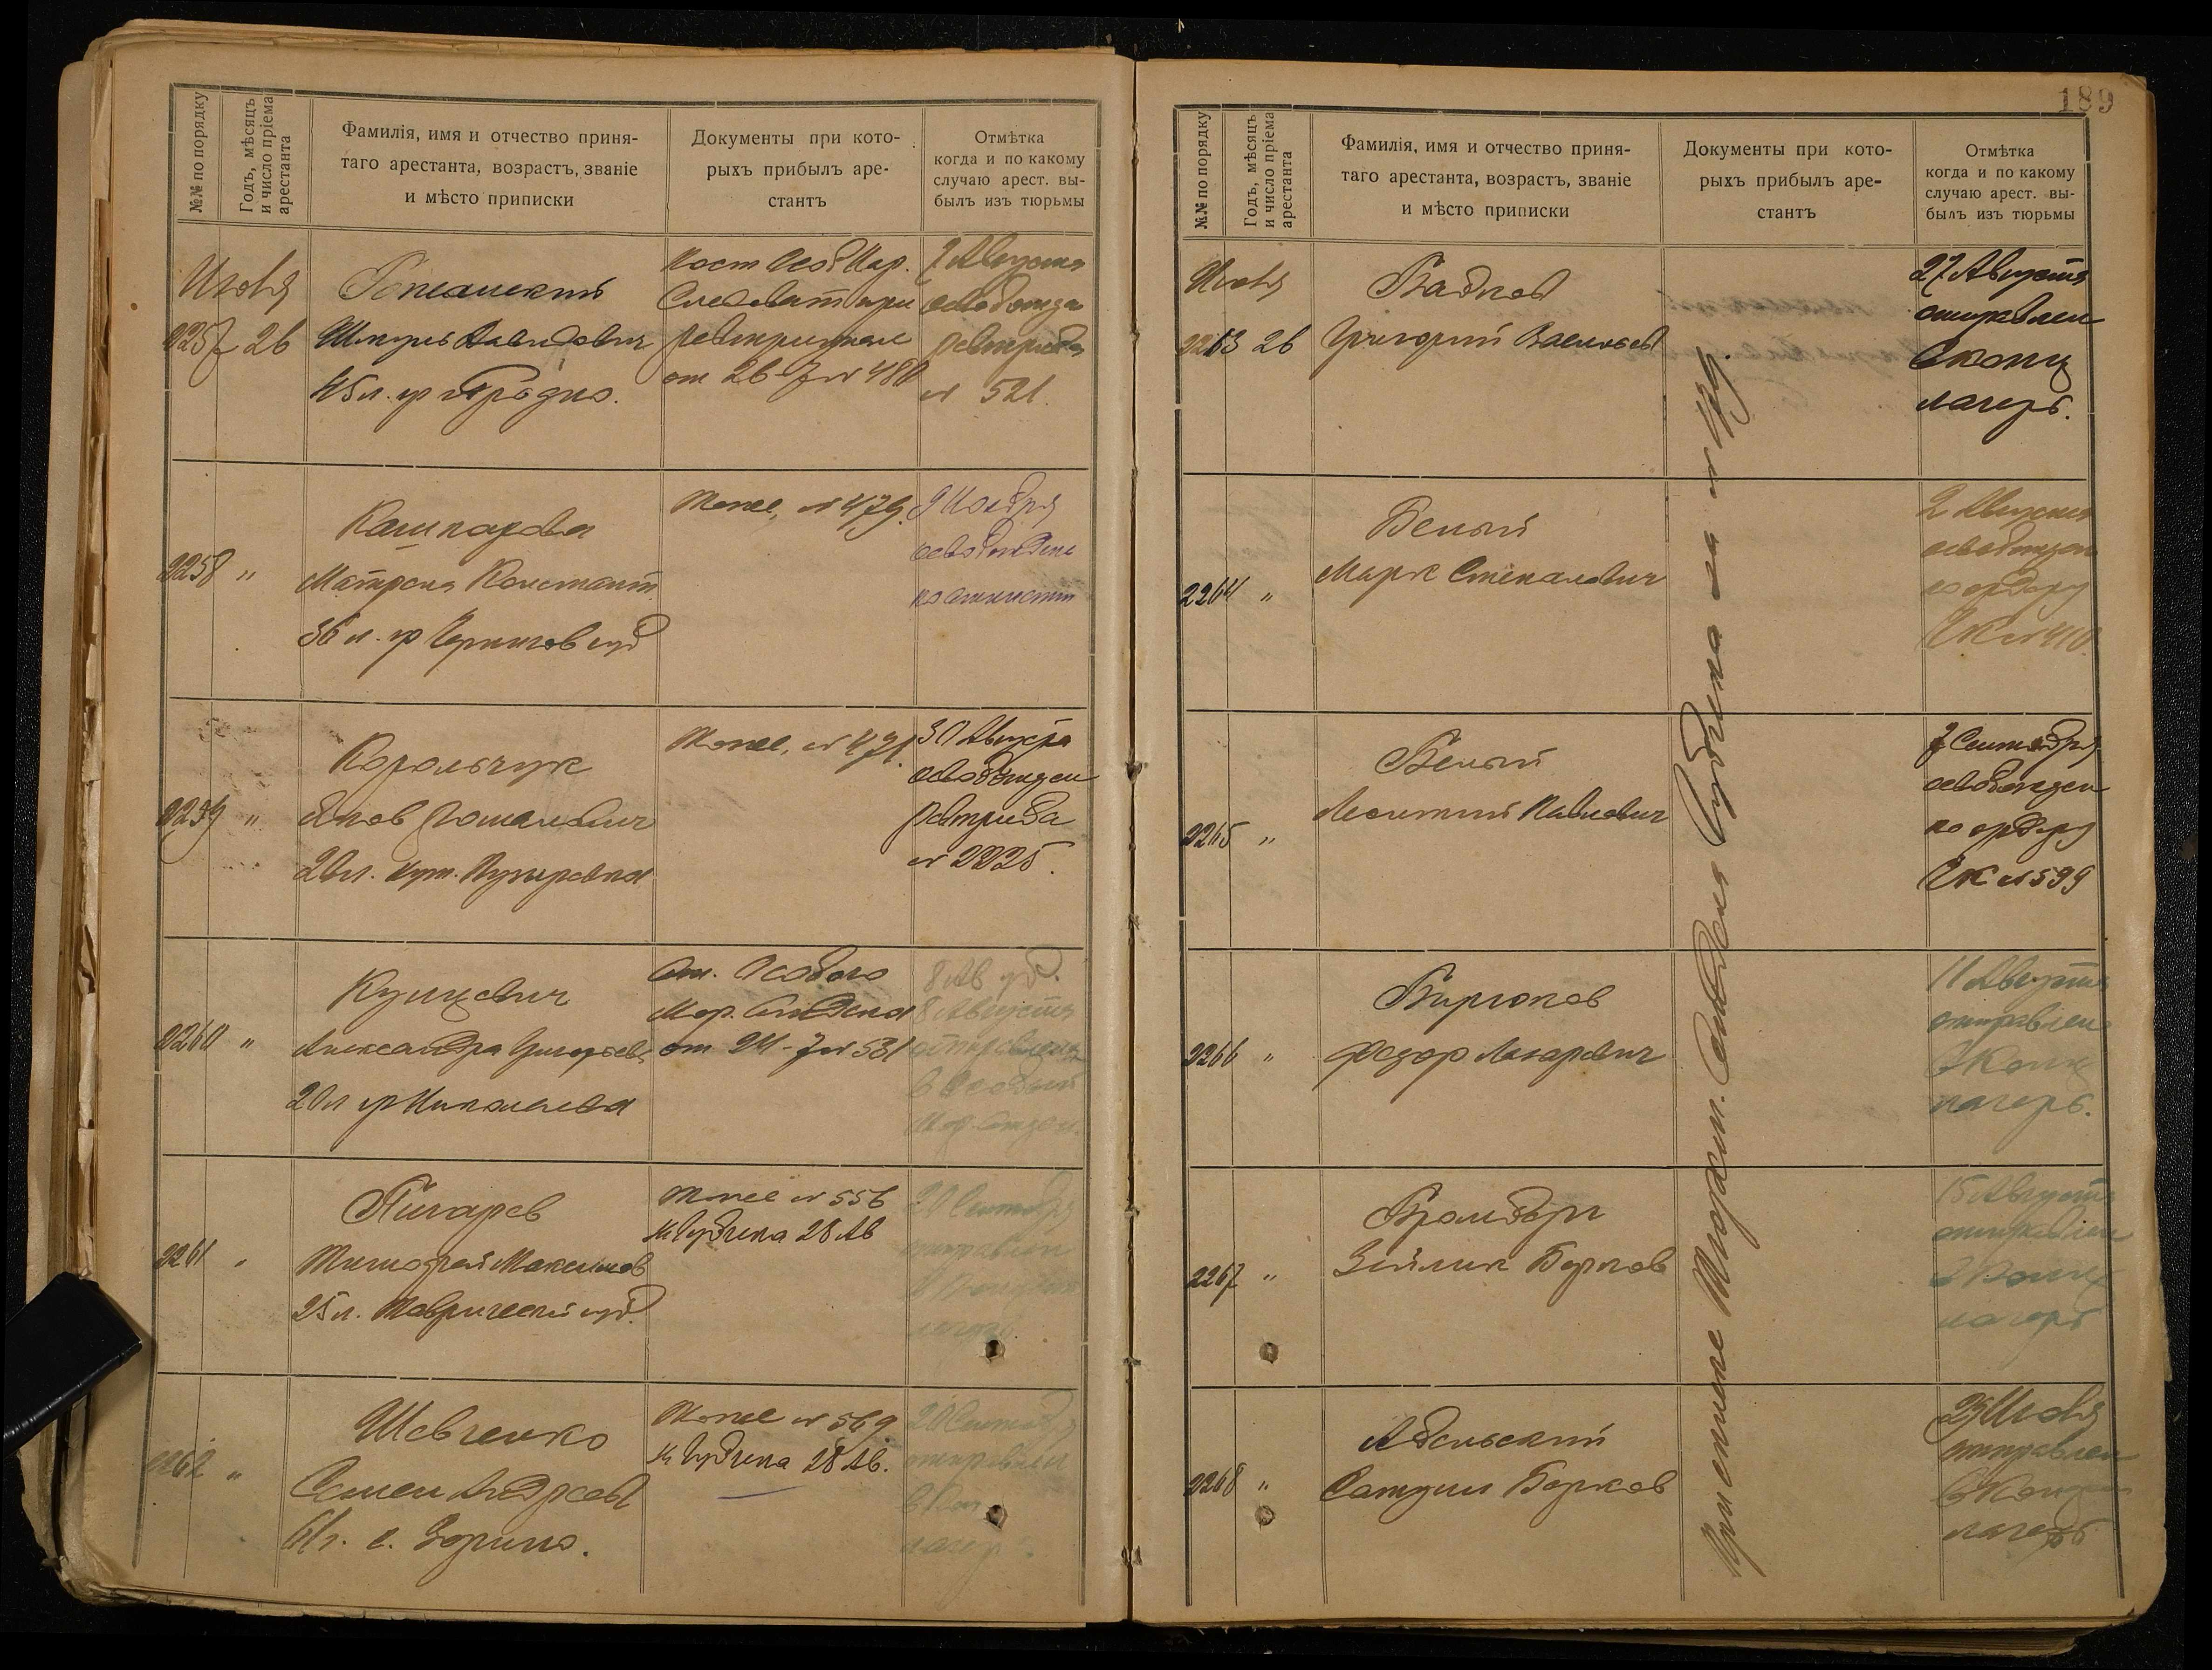 №№ по порядку
Годъ, мѣсяцъ
и число пріема
арестанта
Фамилія, имя и отчество приня-
таго арестанта, возрастъ, званіе
и мѣсто приписки
Документы при кото-
рыхъ прибылъ аре-
стантъ
Отмѣтка
когда и по какому
случаю арест. вы-
былъ изъ тюрьмы
Июля
2257 26
Шмуль Давидович
45 л. гр
от 26-7 № 480
7 Августа
освобожден
Ревтриба
№ 521.
2258 "
Кашпарова
Матрена Констант
36 л. гр Чернигов губ
Тоже, № 479.
9 Ноября
освобождена
по амнистии
2259 "
Корольчук
Яков Романович
20 л.
Тоже, № 471.
30 Августа
освобожден
Ревтриба
№ 2225.
2260 "
Кунцевич
Александра Григорьев.
20 л гр Николаева
От. Особого
Мор. Отдела
от 24-7 № 531
8 Ав
8 Августа
отправлена
в Особый
Мор. Отдел.
2261 "
Писарев
Тимофей Максимов
25 л. Таврической губ.
Тоже № 556
28 Ав
20 Сентября
отправлен
лагерь
2262 "
Шевченко
Семен Андреев
61 г. с. Зорино.
Тоже № 569
28 Ав.
20 Сентября
отправлен
в Кон
лагерь.
189
№№ по порядку
Годъ, мѣсяцъ
и число пріема
арестанта
Фамилія, имя и отчество приня-
таго арестанта, возрастъ, званіе
и мѣсто приписки
Документы при кото-
рыхъ прибылъ аре-
стантъ
Отмѣтка
когда и по какому
случаю арест. вы-
былъ изъ тюрьмы
Июля
2263 26
Бабков
Григорий Васильев
27 Августа
отправлен
в конц
лагерь.
2264 "
Белый
Марк Степанович
2 Августа
освобожден
по ордеру
ЧК № 410.
2265 "
Белый
Леонтий Павлович
7 Сентября
освобожден
по ордеру
ЧК № 599
2266 "
Бирюков
Федор Лазаревич
11 Августа
отправлен
в Конц
лагерь.
2267 "
Бромберг
Зейлик Берков
15 Августа
отправлен
в Конц
лагерь
2268 "
Абельский
Самуил Берков
29 Июля
отправлен
в Конц
лагерь